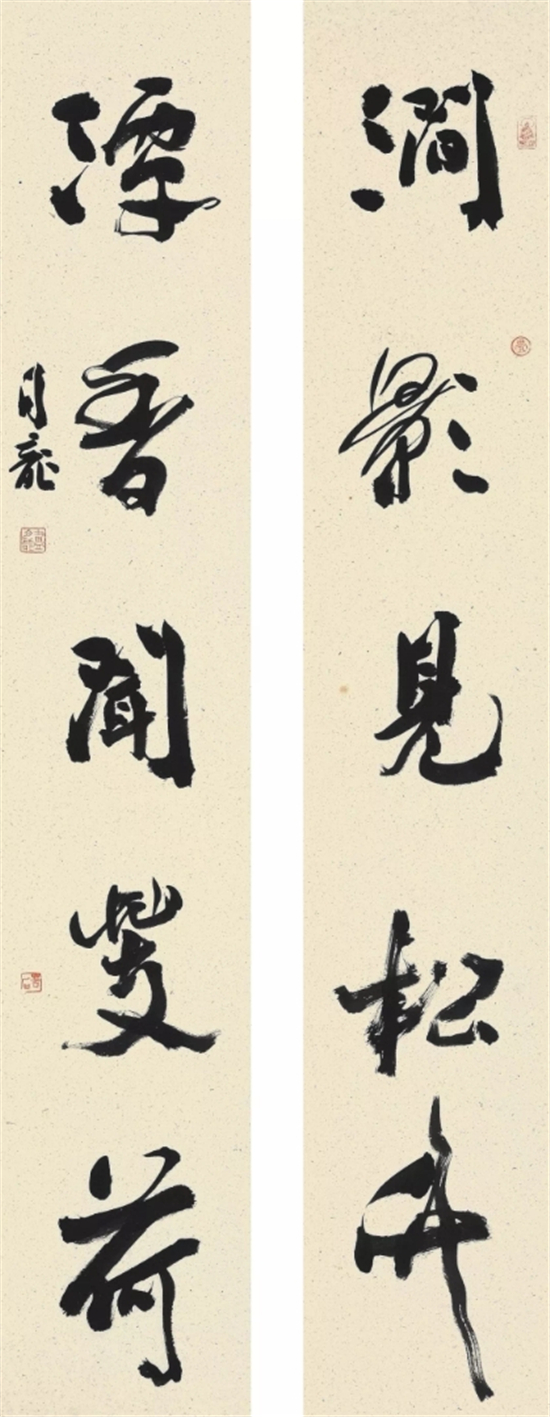 澗影見松竹
潭香聞芰荷
月龍